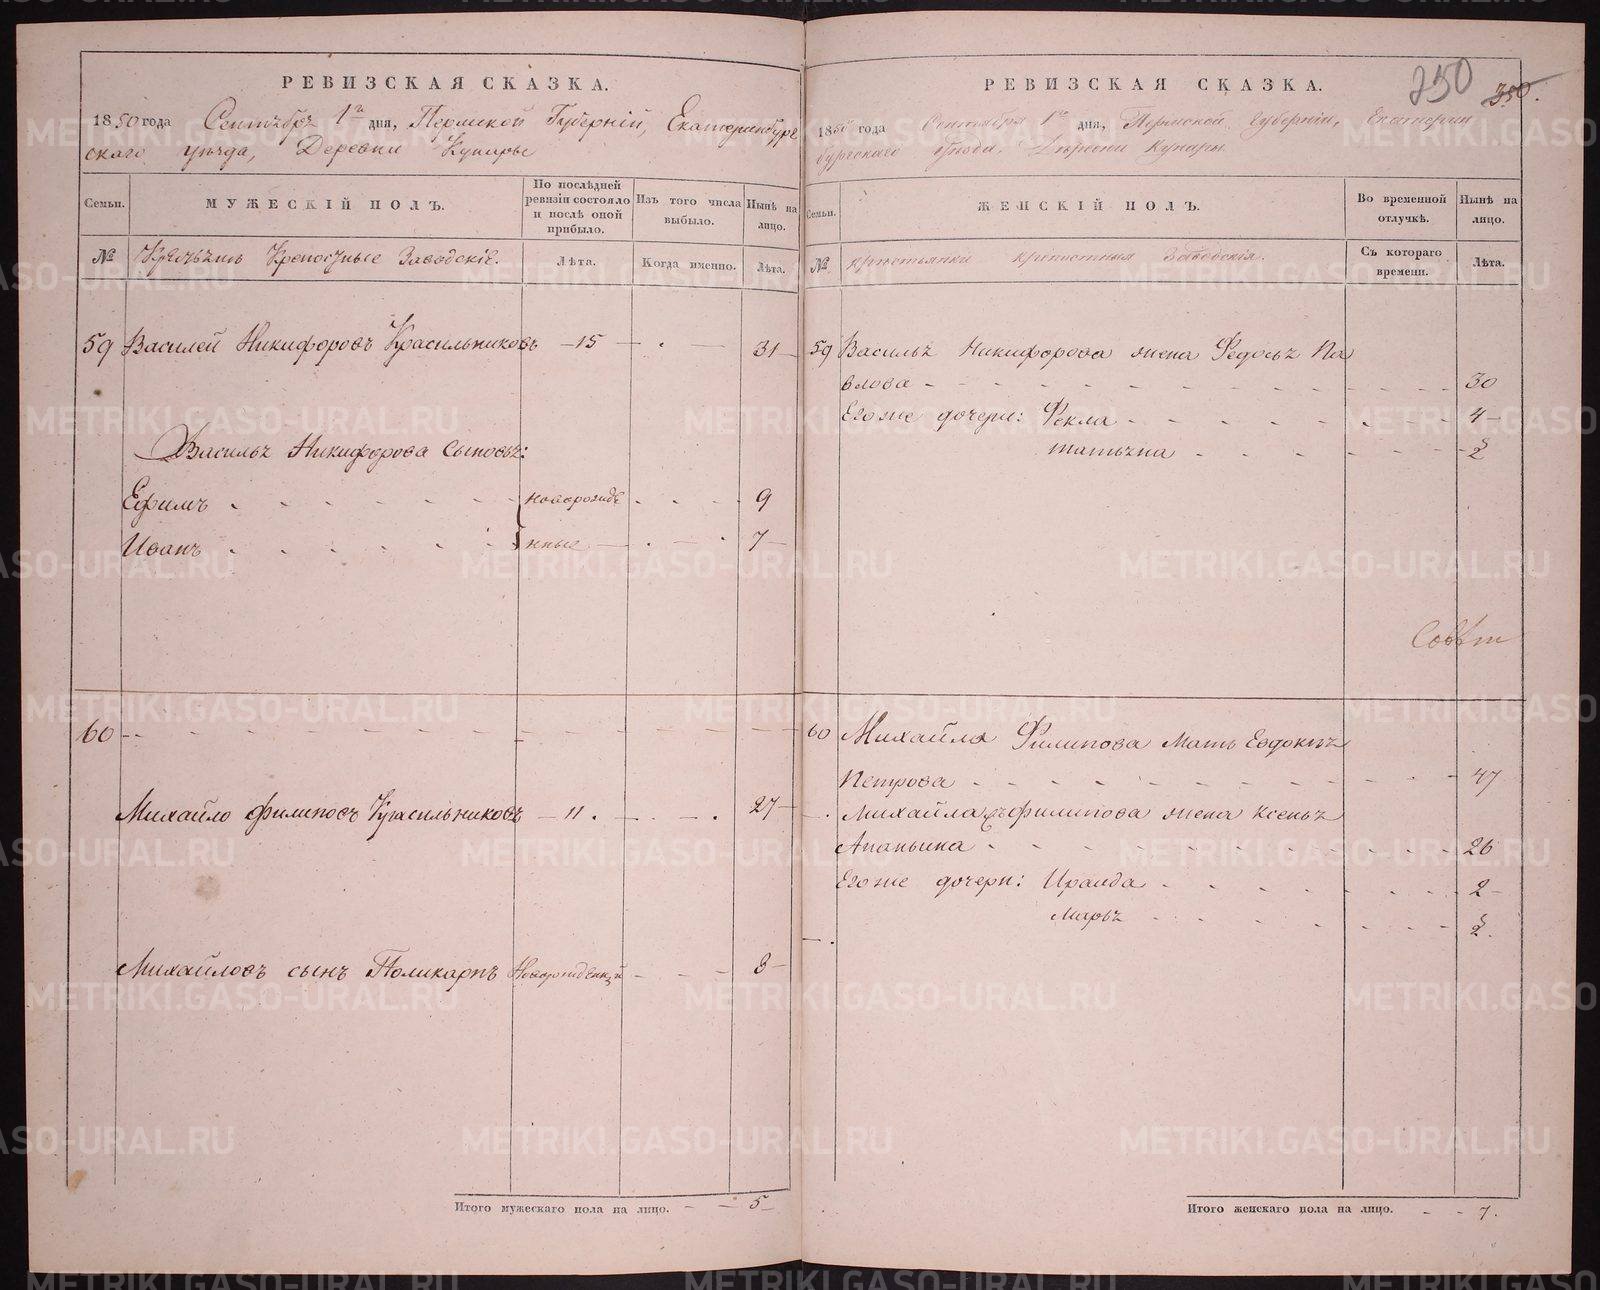 РЕВИЗСКАЯ СКАЗКА.
1850 года Сентября 1го дня, Пермской Губерніи, Екатеринбург
скаго уѣзда, Деревни Кунары
Семьи.
МУЖЕСКІЙ ПОЛЪ.
По послѣдней ревизіи состояло и послѣ оной прибыло.
Изъ того числа выбыло.
Нынѣ на лицо.
№
Крестьянъ Крепостные Заводскіе.
Лѣта.
Когда именно.
Лѣта.
59 Василей Никифоровъ Красильниковъ — 15 — . — 31 —
Васильѧ Никифорова сыновьѧ:
Ефимъ новорожде 9
Иванъ нные — . — . 7 —
60
Михайло Филиповъ Красильниковъ — 11 . — . — . 27 —
Михайловъ сынъ Поликарпъ Новорожденный 3 —
Итого мужескаго пола на лицо. — — 5 —
250
350.
РЕВИЗСКАЯ СКАЗКА.
1850 года Сентября 1го дня, Пермской Губерніи, Екатерин
бургскаго уѣзда, Деревни Кунары
Семьи.
ЖЕНСКІЙ ПОЛЪ.
Во временной отлучкѣ.
Нынѣ на лицо.
№
крестьянки крепостныя Заводскія.
Съ котораго времени.
Лѣта.
59 Васильѧ Никифорова жена Федосьѧ Па
влова 30
Его же дочери: Фекла 4 —
Татьѧна 2
Совѣт
60 Михайла Филипова Мать Евдокиѧ
Петрова 47
Михайла Филипова жена Ксеньѧ
Ананьина 26
Его же дочери: Ираида 2 —
Марьѧ 2.
Итого женскаго пола на лицо. — — 7.
METRIKI.GASO-URAL.RU